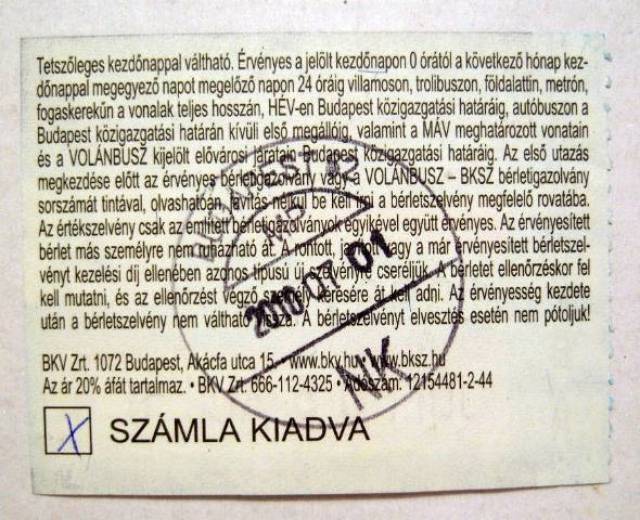 Tetszőleges kezdőnappal váltható. Érvényes a jelölt kezdőnapon 0 órától a következő hónap kez-
dőnappal megegyező napot megelőző napon 24 óráig villamoson, trolibuszon, földalattin, metrón,
fogaskerekűn a vonalak teljes hosszán, HÉV-en Budapest közigazgatási határáig, autóbuszon a
Budapest közigazgatási határán kívüli első megállóig, valamint a MÁV meghatározott vonatain
és a VOLÁNBUSZ kijelölt elővárosi járatain Budapest közigazgatási határáig. Az első utazás
megkezdése előtt az érvényes bérletigazolvány vagy a VOLÁNBUSZ – BKSZ bérletigazolvány
sorszámát tintával, olvashatóan, javítás nélkül be kell írni a bérletszelvény megfelelő rovatába.
Az értékszelvény csak az említett bérletigazolványok egyikével együtt érvényes. Az érvényesített
bérlet más személyre nem ruházható át. A rontott, javított vagy a már érvényesített bérletszel-
vényt kezelési díj ellenében azonos típusú új szelvényre cseréljük. A bérletet ellenőrzéskor fel
kell mutatni, és az ellenőrzést végző személy kérésére át kell adni. Az érvényesség kezdete
után a bérletszelvény nem váltható vissza. A bérletszelvényt elvesztés esetén nem pótoljuk!
2010/07/01
NK
BKV Zrt. 1072 Budapest, Akácfa utca 15. • www.bkv.hu • www.bksz.hu
Az ár 20% áfát tartalmaz. • BKV Zrt. 666-112-4325 • Adószám: 12154481-2-44
X SZÁMLA KIADVA